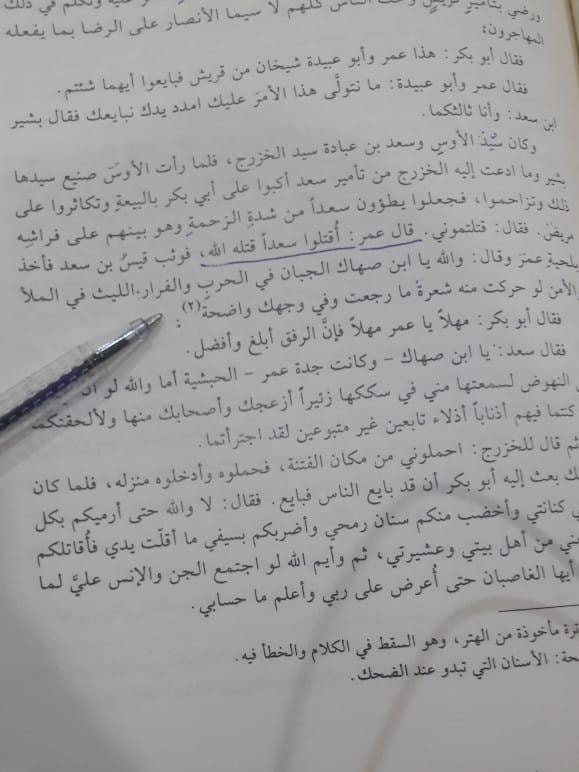 ورضي بتأمير قريش وحث الناس كلهم لا سيما الأنصار على الرضا بما يفعله
المهاجرون:
فقال أبو بكر: هذا عمر وأبو عبيدة شيخان من قريش فبايعوا أيهما شئتم.
فقال عمر وأبو عبيدة: ما نتولَّى هذا الأمرَ عليك امدد يدك نبايعك فقال بشير
ابن سعد: وأنا ثالثكما.
وكان سيّدَ الأوسِ وسعد بن عبادة سيد الخزرج، فلما رأت الأوسُ صنيع سيدها
بشير وما ادعت إليه الخزرج من تأمير سعد أكبوا على أبي بكر بالبيعةِ وتكاثروا على
ذلك وتزاحموا، فجعلوا يطؤون سعداً من شدةِ الزحمةِ وهو بينهم على فراشِهِ
مريضٌ. فقال: قتلتموني. قال عمر: أُقتلوا سعداً قتله الله، فوثب قيسُ بن سعد فأخذ
بلحيةِ عمرَ وقال: والله يا ابن صهاك الجبان في الحربِ والفرار.الليث في الملأ
الأمن لو حركت منه شعرةً ما رجعت وفي وجهك واضحة(٢).
فقال أبو بكر: مهلاً يا عمر مهلاً فإنَّ الرفق أبلغ وأفضل.
فقال سعد: يا ابن صهاك - وكانت جدة عمر - الحبشية أما والله لو أن
النهوض لسمعتها مني في سككها زئيراً أزعجك وأصحابك منها ولألحقتكما
كنتما فيهم أذناباً أذلاء تابعين غير متبوعين لقد اجترأتما.
ثم قال للخزرج: احملوني من مكان الفتنة، فحملوه وأدخلوه منزله، فلما كان
بعث إليه أبو بكر أن قد بايع الناس فبايع. فقال: لا والله حتى أرميكم بكل
كنانتي وأخضب منكم سنان رمحي وأضربكم بسيفي ما أقلّت يدي فأقاتلكم
من أهل بيتي وعشيرتي، ثم وأيم الله لو اجتمع الجن والإنس عليَّ لما
أيها الغاصبان حتى أُعرض على ربي وأعلم ما حسابي.
مأخوذة من الهتر، وهو السقط في الكلام والخطأ فيه.
الأسنان التي تبدو عند الضحك.